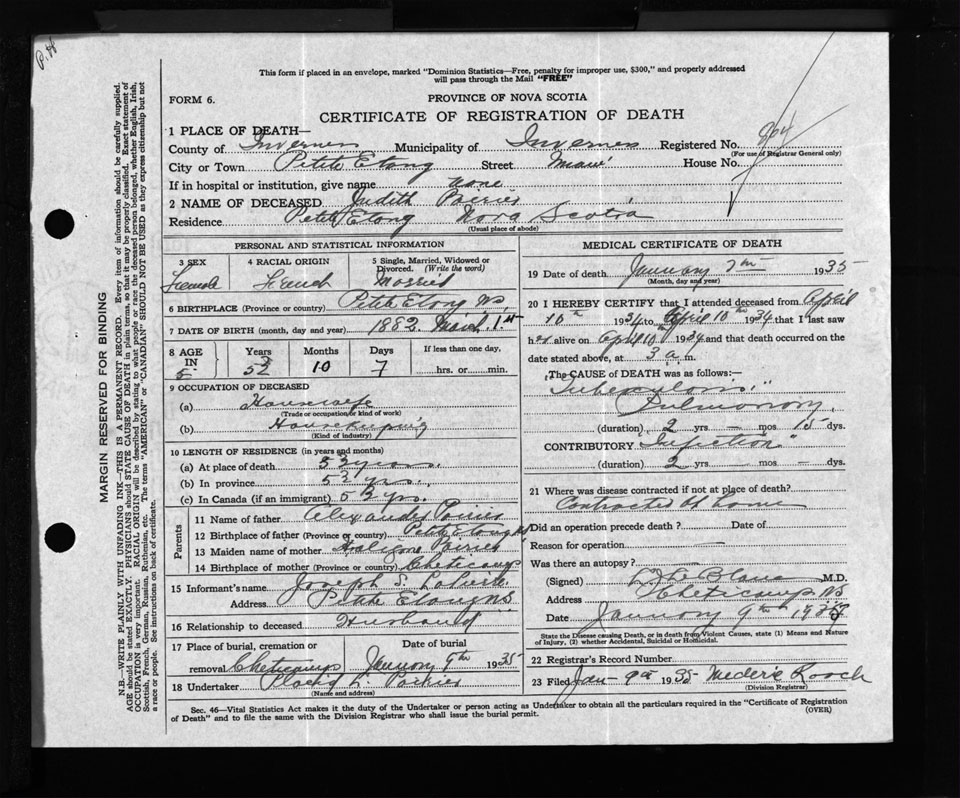 P.H
This form if placed in an envelope, marked "Dominion Statistics—Free, penalty for improper use, $300," and properly addressed
will pass through the Mail "FREE"
FORM 6.
PROVINCE OF NOVA SCOTIA
CERTIFICATE OF REGISTRATION OF DEATH
1 PLACE OF DEATH—
County of Inverness Municipality of Inverness Registered No. 864
(For use of Registrar General only)
City or Town Petit Etang Street Main House No.
If in hospital or institution, give name none
2 NAME OF DECEASED Judith Poirier
Residence Petit Etang Nova Scotia
(Usual place of abode)
PERSONAL AND STATISTICAL INFORMATION
3 SEX 4 RACIAL ORIGIN 5 Single, Married, Widowed or Divorced. (Write the word)
Female French Married
6 BIRTHPLACE (Province or country) Petit Etang NS
7 DATE OF BIRTH (month, day and year) 1882 March 1st
8 AGE IN Years Months Days If less than one day,
10 7 hrs. or min.
9 OCCUPATION OF DECEASED
(a) Housewife
(Trade or occupation or kind of work)
(b) Housekeeping
(Kind of industry)
10 LENGTH OF RESIDENCE (in years and months)
(a) At place of death 53 years
(b) In province 53 yrs.
(c) In Canada (if an immigrant) 53 yrs.
Parents
11 Name of father Alexander Poirier
12 Birthplace of father (Province or country) Petit Etang NS
13 Maiden name of mother
14 Birthplace of mother (Province or country) Cheticamp
15 Informant's name Joseph S.
Address Petit Etang NS
16 Relationship to deceased Husband
17 Place of burial, cremation or removal Cheticamp Date of burial January 9th 1935
18 Undertaker Placid L. Poirier
(Name and address)
MEDICAL CERTIFICATE OF DEATH
19 Date of death January 7th 1935
(Month, day and year)
20 I HEREBY CERTIFY that I attended deceased from April
10th 1934 to April 10th 1934 that I last saw
her alive on April 10 1934 and that death occurred on the
date stated above, at 3 a.m.
The CAUSE of DEATH was as follows:—
Tuberculosis
Pulmonary
(duration) 2 yrs. — mos. 15 dys.
CONTRIBUTORY "Infection"
(duration) 2 yrs. — mos. — dys.
21 Where was disease contracted if not at place of death?
Contracted at home
Did an operation precede death? — Date of
Reason for operation —
Was there an autopsy? —
(Signed) LeBlanc M.D.
Address Cheticamp NS
Date January 9th
State the Disease causing Death, or in death from Violent Causes, state (1) Means and Nature
of Injury, (2) whether Accidental, Suicidal or Homicidal.
22 Registrar's Record Number
23 Filed Jan 9th 1935 Mederic Roach
(Division Registrar)
Sec. 46—Vital Statistics Act makes it the duty of the Undertaker or person acting as Undertaker to obtain all the particulars required in the "Certificate of Registration
of Death" and to file the same with the Division Registrar who shall issue the burial permit.
(OVER)
MARGIN RESERVED FOR BINDING
N.B.—WRITE PLAINLY WITH UNFADING INK—THIS IS A PERMANENT RECORD. Every item of information should be carefully supplied.
AGE should be stated EXACTLY. PHYSICIANS should STATE CAUSE OF DEATH in plain terms, so that it may be properly classified. Exact statement of
OCCUPATION is very important. RACIAL ORIGIN will be described by stating to what people or race the deceased person belonged, whether English, Irish,
Scottish, French, German, Russian, Ruthenian, etc. The terms "AMERICAN" or "CANADIAN" SHOULD NOT BE USED as they express citizenship but not
a race or people. See instructions on back of certificate.